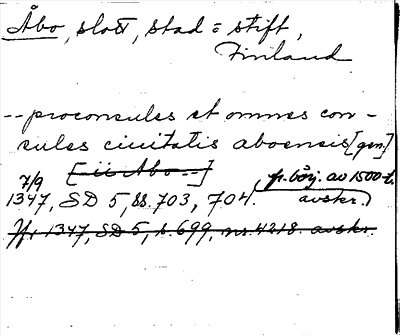 Åbo, slott, stad = stift,
Finland
-- proconsules et omnes con-
sules ciuitatis aboensis [gen]
[- ii Abo --]
7/9 fr. börj. av 1500-t.
1347, SD 5, ss. 703, 704. avskr.)
1347, SD 5, s. 699, nr. 4218. avskr.